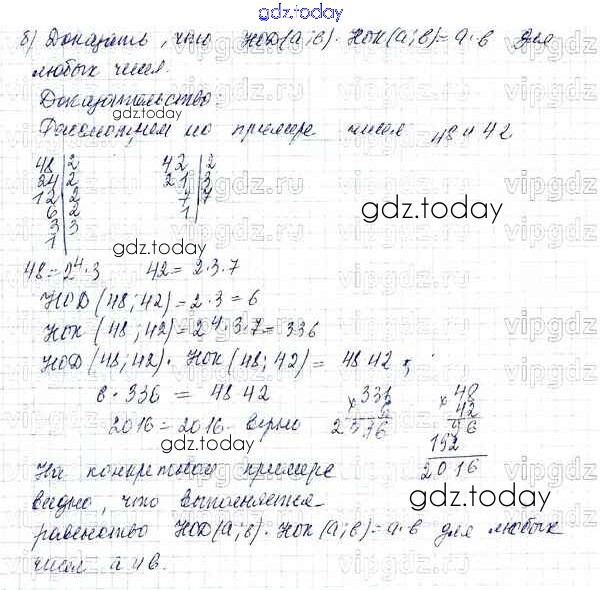 gdz.today
б) Доказать, что НОД(а;в)·НОК(а;в)=а·в для
любых чисел.
Доказательство:
gdz.today
Рассмотрим на примере чисел 48 и 42
48|2 42|2
24|2 21|3
12|2 7|7
6|2 1|
3|3
1|
gdz.today
gdz.today
48=2⁴·3 42=2·3·7
НОД(48;42)=2·3=6
НОК(48;42)=2⁴·3·7=336
НОД(48;42)·НОК(48;42)=48·42;
6·336=48·42
2016=2016 - верно
336 × 6
48 × 42
96
192
2016
gdz.today
На конкретном примере
gdz.today
видно, что выполняется
равенство НОД(а;в)·НОК(а;в)=а·в для любых
чисел а и в.
vipgdz.ru